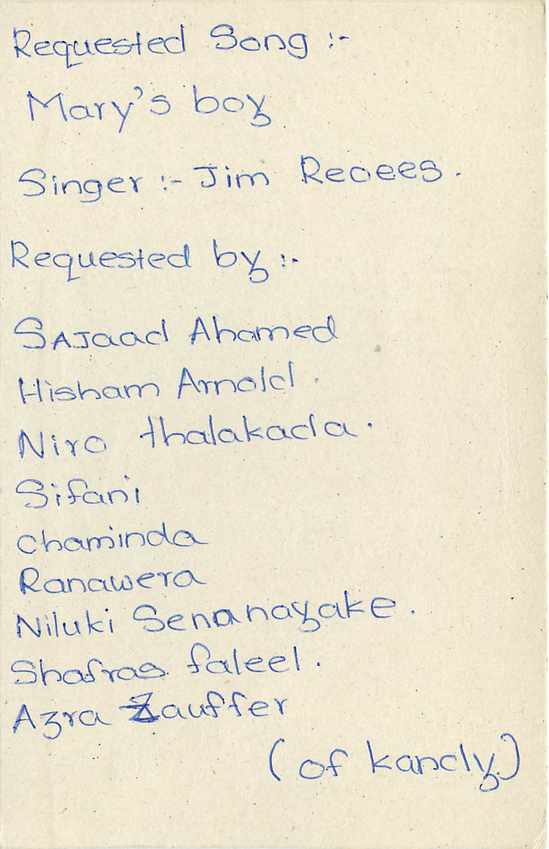 Requested Song :-
Mary's boy
Singer :- Jim Reoees.
Requested by :-
SAJaad Ahamed
Hisham Arnold.
Niro thalakada.
Sifani
chaminda
Ranawera
Niluki Senanayake.
Shafras faleel.
Azra Zauffer
(of kandy)